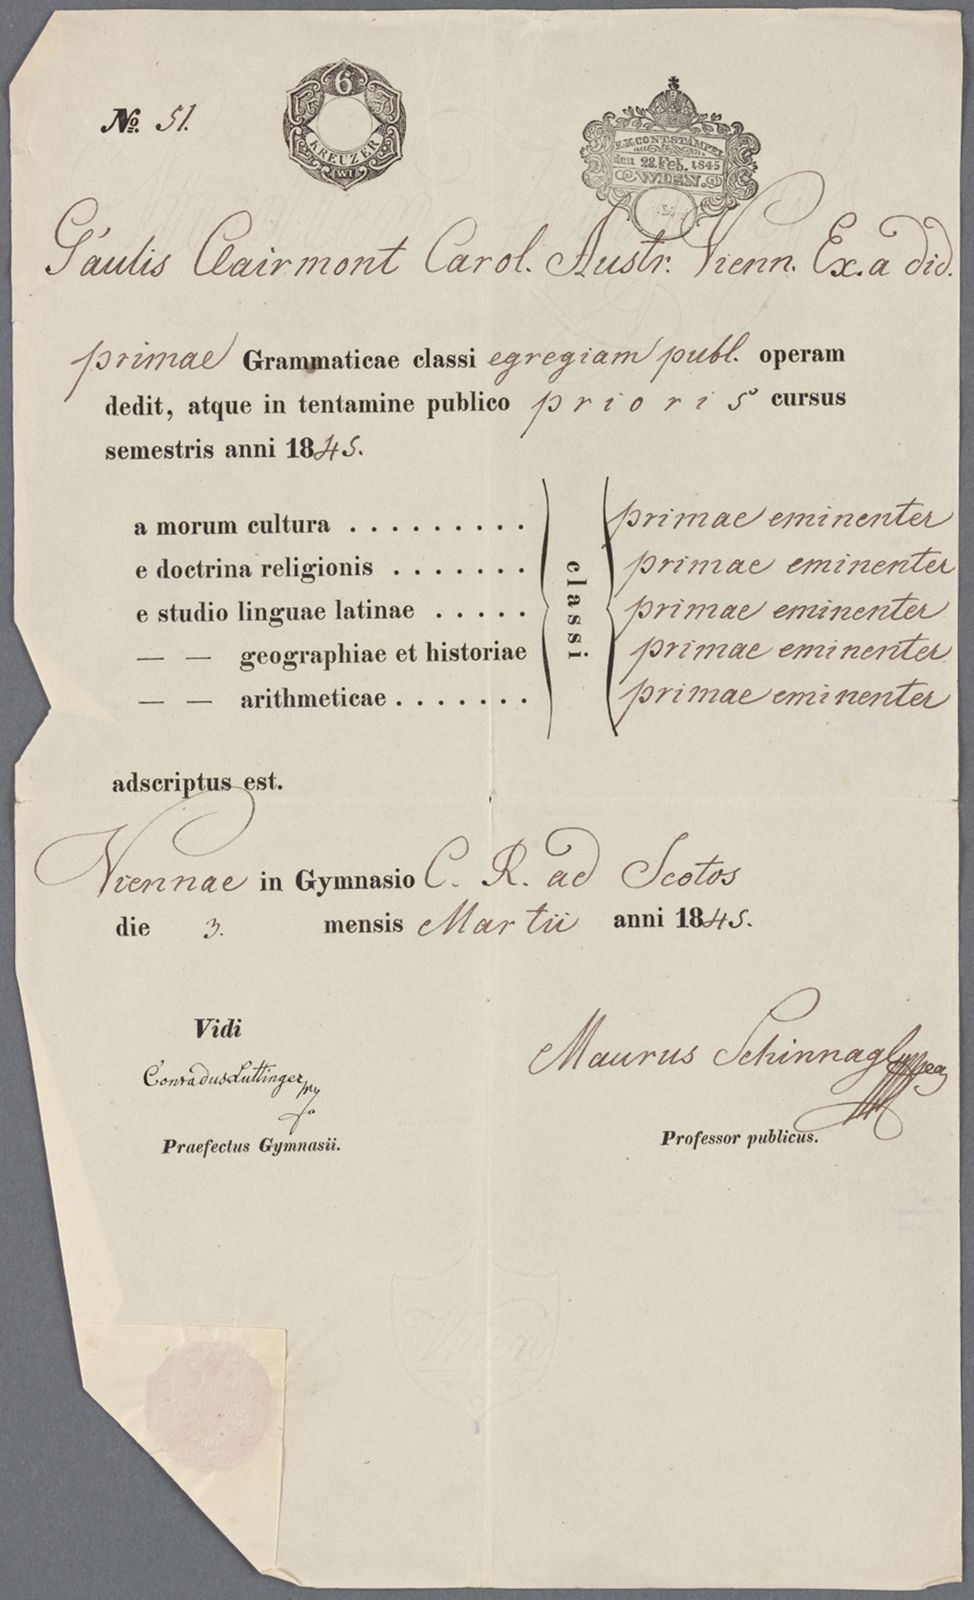 No. 51.
6
KREUZER
WI
EX. CONT. STÄMPEL
den 28 Feb. 1845
WIEN.
Gaulis Clairmont Carol. Austr. Vienn. Ex. a did.
primae Grammaticae classi egregiam publ. operam
dedit, atque in tentamine publico prioris cursus
semestris anni 1845.
a morum cultura . . . . . . . . . primae eminenter
e doctrina religionis . . . . . . . primae eminenter
e studio linguae latinae . . . . . classi primae eminenter
— — geographiae et historiae primae eminenter
— — arithmeticae . . . . . . . primae eminenter
adscriptus est.
Viennae in Gymnasio C. R. ad Scotos
die 3. mensis Martii anni 1845.
Vidi
Conradus Luttinger
Maurus Schinnagl
Praefectus Gymnasii.
Professor publicus.
Wien